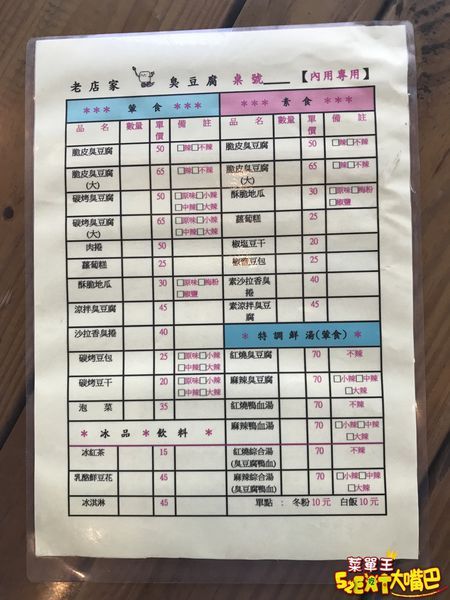 老店家 臭豆腐 桌號____【內用專用】
*** 葷食 ***
品名 數量 單價 備註
脆皮臭豆腐 50 □辣□不辣
脆皮臭豆腐(大) 65 □辣□不辣
碳烤臭豆腐 50 □原味□小辣
□中辣□大辣
碳烤臭豆腐(大) 65 □原味□小辣
□中辣□大辣
肉捲 50
蘿蔔糕 25
酥脆地瓜 30 □原味□梅粉
□椒鹽
涼拌臭豆腐 45
沙拉香臭捲 45
碳烤豆包 25 □原味□小辣
□中辣□大辣
碳烤豆干 20 □原味□小辣
□中辣□大辣
泡菜 35
* 冰品 * 飲料 *
冰紅茶 15
乳酪鮮豆花 45
冰淇淋 45
*** 素食 ***
品名 數量 單價 備註
脆皮臭豆腐 50 □辣□不辣
脆皮臭豆腐(大) 65 □辣□不辣
酥脆地瓜 30 □原味□梅粉
□椒鹽
蘿蔔糕 25
椒塩豆干 20
椒鹽豆包 25
素沙拉香臭捲 40
素涼拌臭豆腐 45
* 特調鮮湯(葷食) *
紅燒臭豆腐 70 不辣
麻辣臭豆腐 70 □小辣□中辣
□大辣
紅燒鴨血湯 70 不辣
麻辣鴨血湯 70 □小辣□中辣
□大辣
紅燒綜合湯 70 不辣
(臭豆腐鴨血)
麻辣綜合湯 70 □小辣□中辣
(臭豆腐鴨血) □大辣
單點： 冬粉10元 白飯10元
菜單王
52EAT大嘴巴